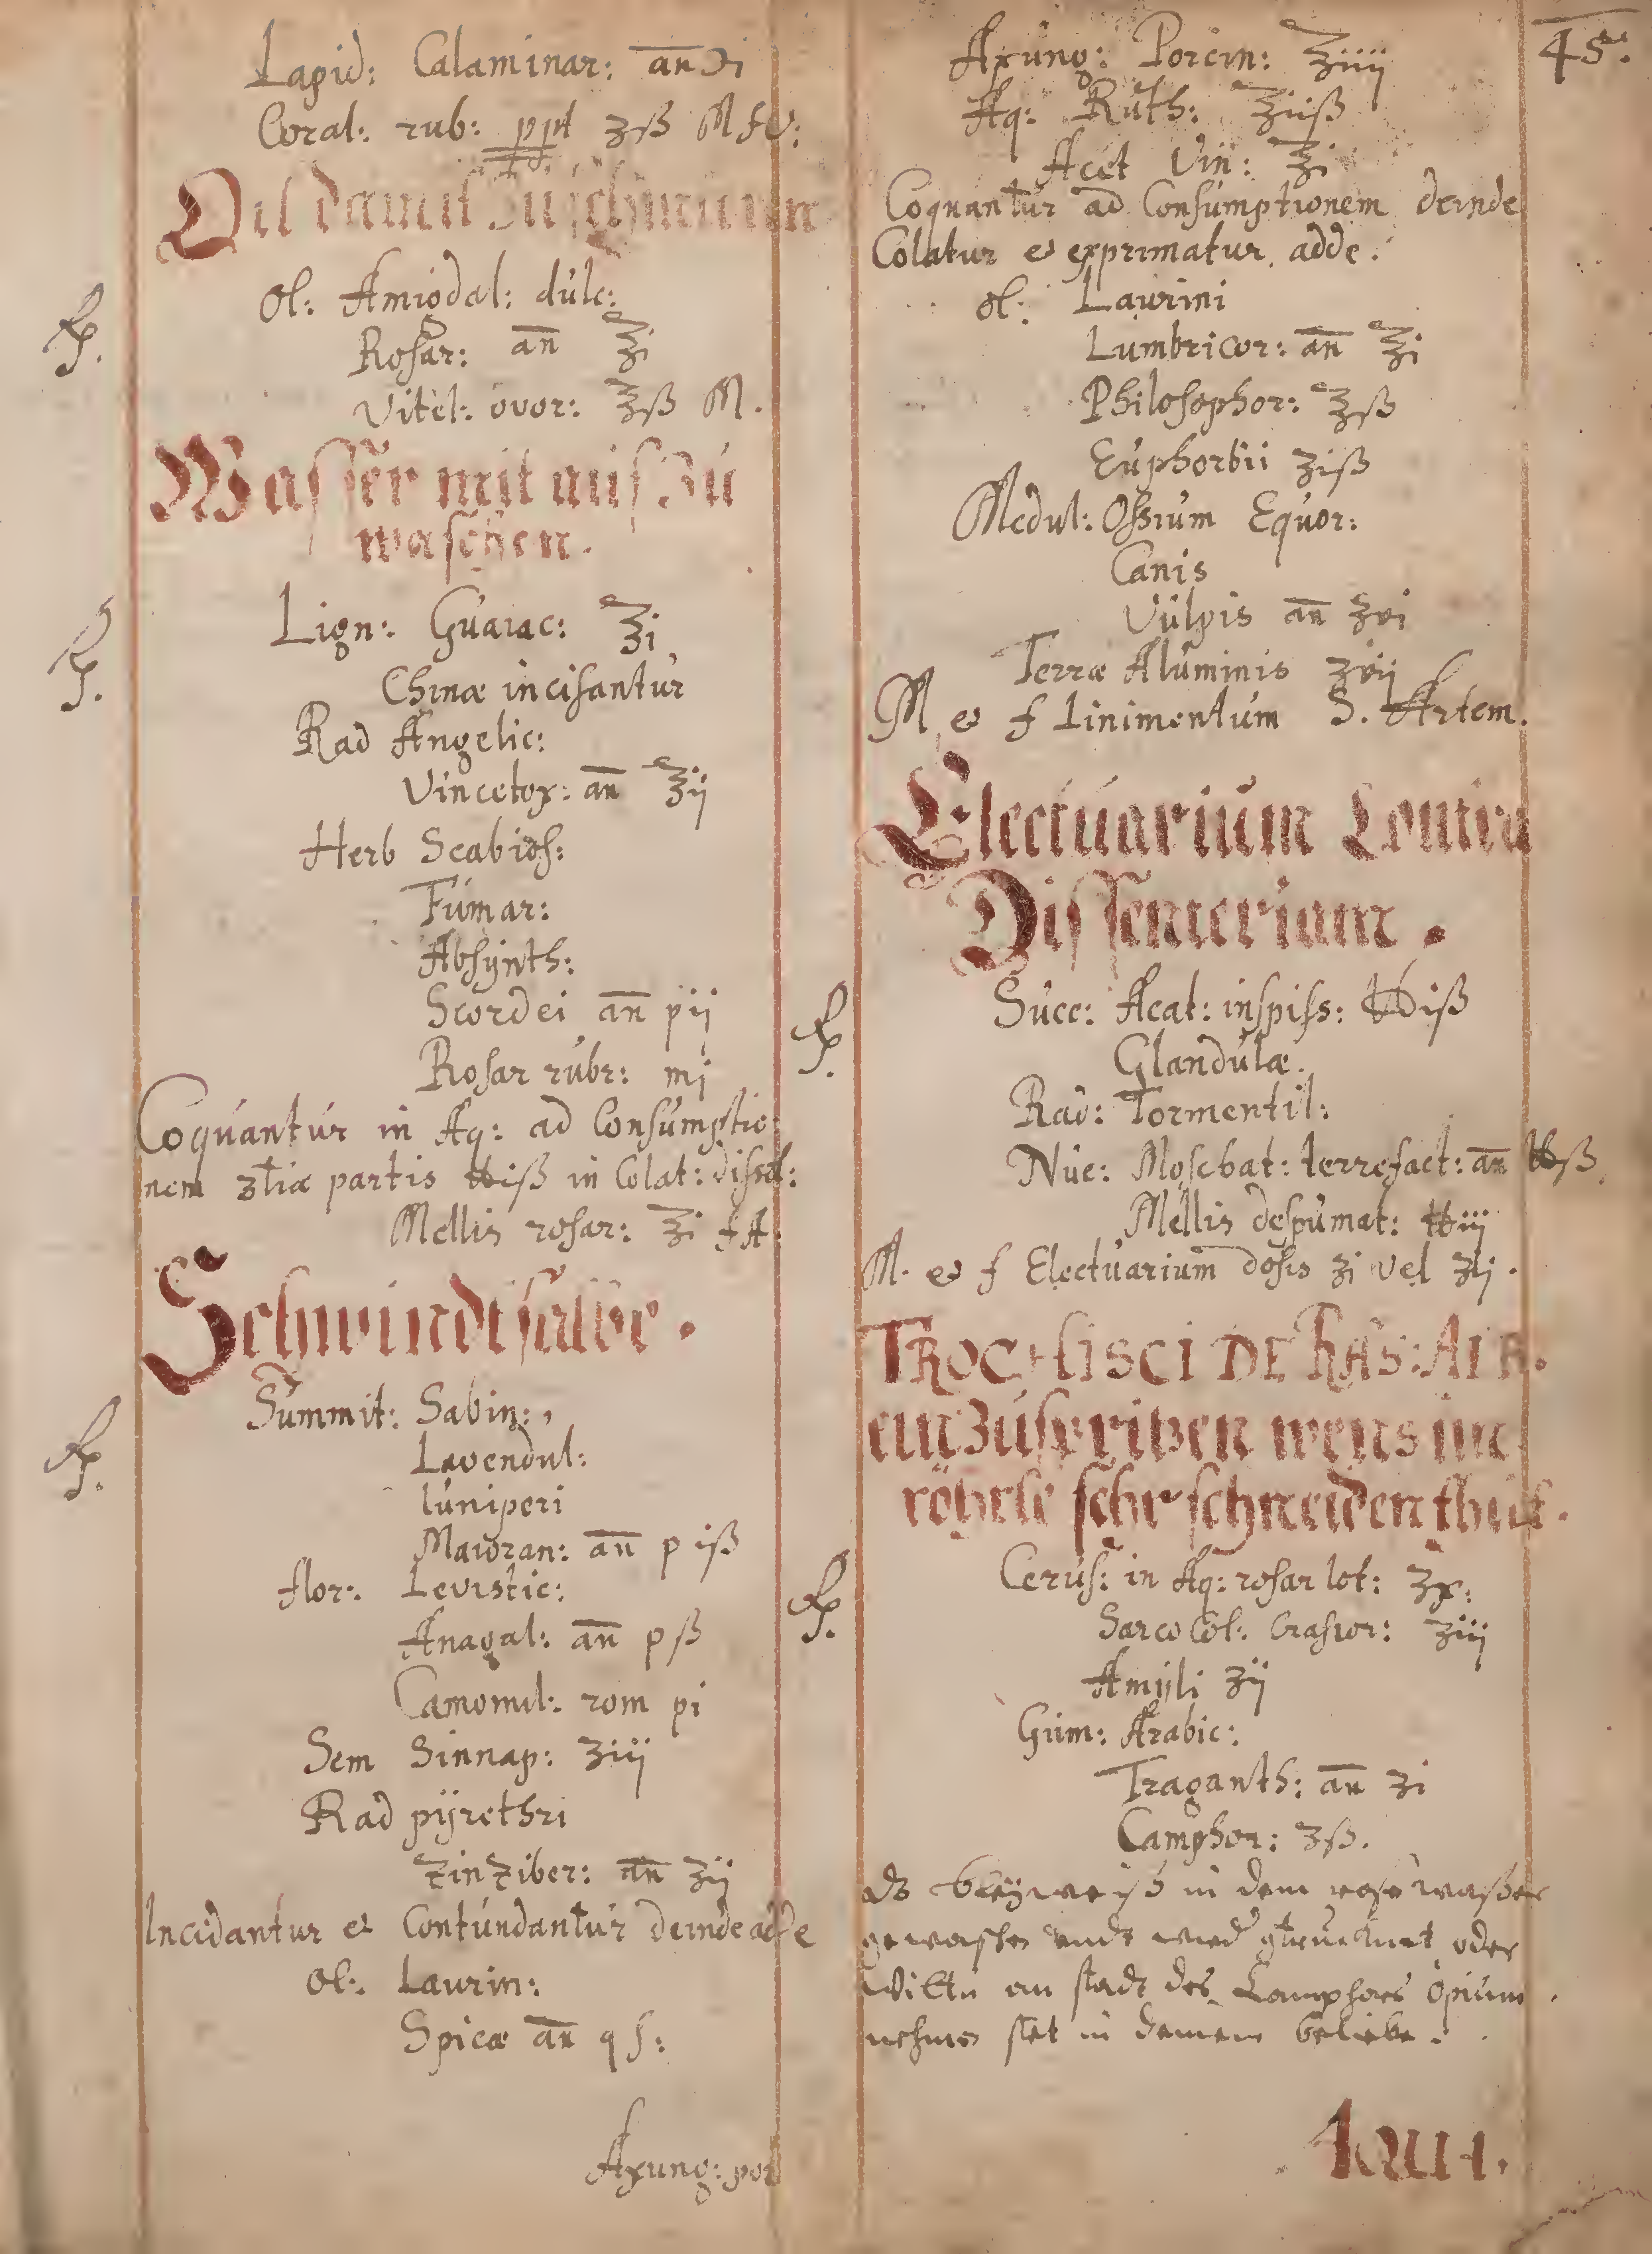 Lapid: Calaminar: an ℈i
Coral: rub: ppt ʒß M f U:
Öil damit Zu schmirren
℞. Ol: Amigdal: dulc:
Rosar: an ℥i
Vitel: ovor: ℥ß M.
Wasser mit aus Zu
waschen.
℞. Lign: Guaiac: ℥i
Chinæ incisantur
Rad Angelic:
Vincetox: an ℥ij
Herb Scabios:
Fumar:
Absynth:
Scordei an pij
Rosar rubr: mj
Coquantur in Aq: ad Consumptio:
nem 3tiæ partis ℔iß in Colat: dissol:
Mellis rosar: ℥i f A
Schwindtsalbe.
℞. Summit: Sabin:,
Lavendul:
Iuniperi
Maioran: an p iß
flor: Levistic:
Anagal: an p ß
Camomil: rom pi
Sem Sinnap: ʒiij
Rad pÿrethri
Zinziber: an ʒij
Incidantur et Contundantur deinde adde
Ol: Laurin:
Spicæ an q s:
Axung: por
45.
Axung: Porcin: ℥iiij
Aq: Ruth: ℥iiß
Acet Vin: ℥i
Coquantur ad Consumptionem deinde
Colatur et exprimatur. adde:
ol: Laurini
Lumbricor: an ℥i
Philosophor: ℥ß
Euphorbii ʒiß
Medul: Ossium Equor:
Canis
Vulpis an ʒvi
Terræ Aluminis ʒvij
M et f Linimentum S. Artem.
Electuarium Contra
Dissenterium.
℞. Succ: Acat: inspiss: ℔iß
Glandulæ.
Rad: Tormentil:
Nuc: Moschat: terrefact: an ℔ß
Mellis despumat: ℔iij
M. et f Electuarium dosis ʒi vel ʒij.
TROCHISCI DE RAS: ALB.
ein Zuspriben wens im
röhrle sehr schneiden thut.
℞. Cerus: in Aq: rosar lot: ʒx:
Sarcocol: Crasior: ʒiij
Amÿli ʒij
Gum: Arabic:
Traganth: an ʒi
Camphor: ʒß.
ds bleÿweiß in dem rosewasser
gewaschen undt wied getrucknet oder
Wiltu an stadt des Camphors Opium
nehmen stet in deinem beliebe.
AQUA.